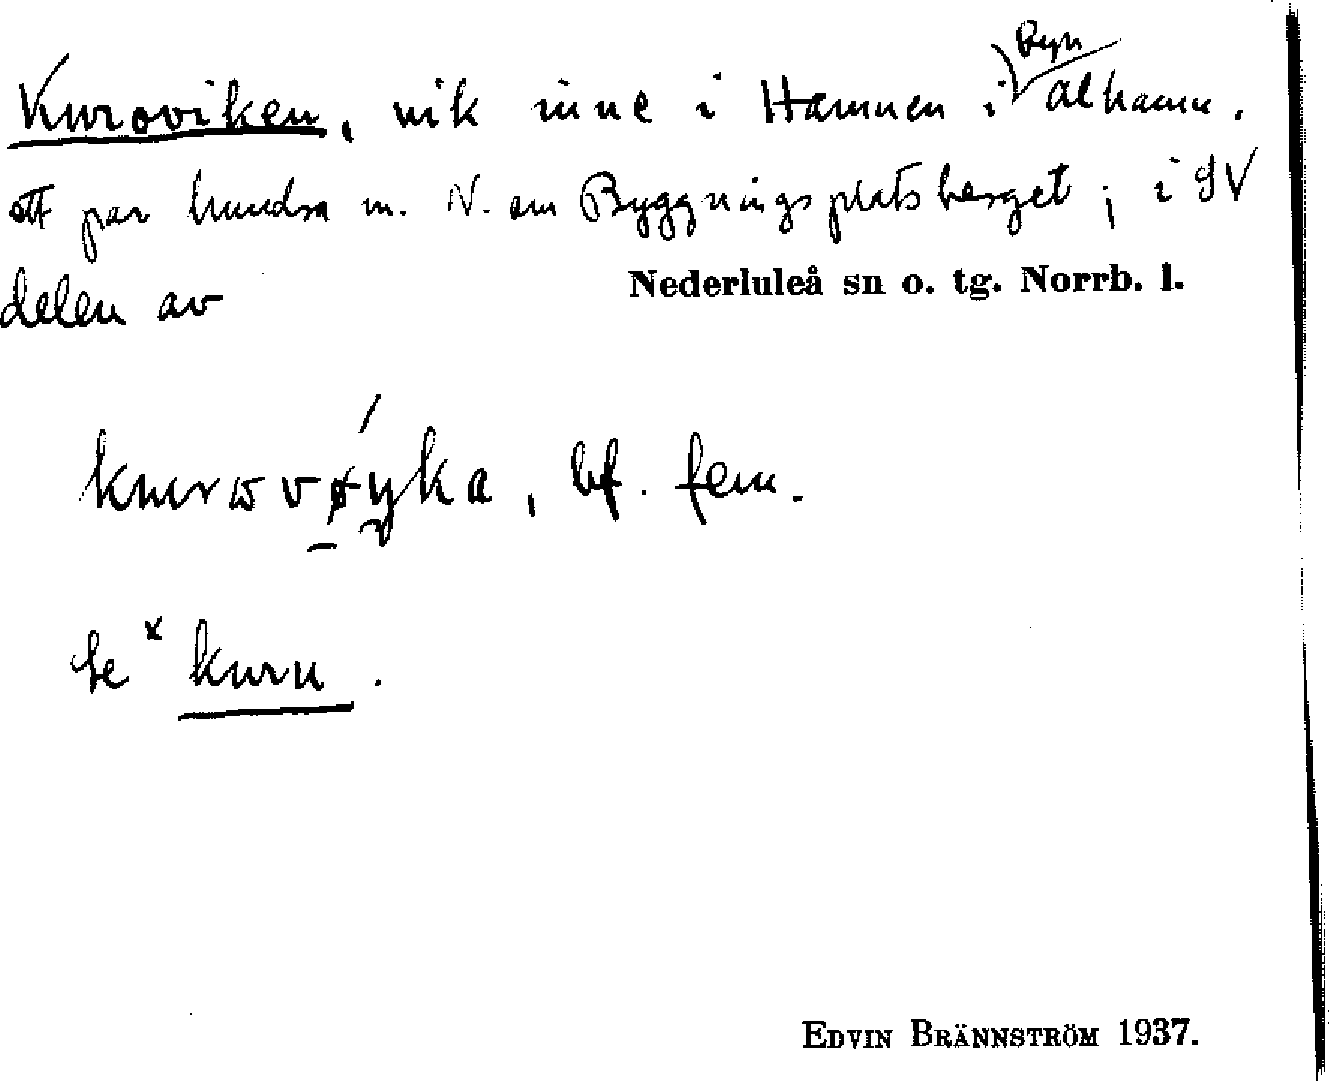 Kuroviken, vik inne i Hamnen i Byn Alhamn.
ett par hundra m. N. om Byggningsplatsberget; i SV
delen av Nederluleå sn o. tg. Norrb. l.
bf. fem.
Se × kuru.
EDVIN BRÄNNSTRÖM 1937.